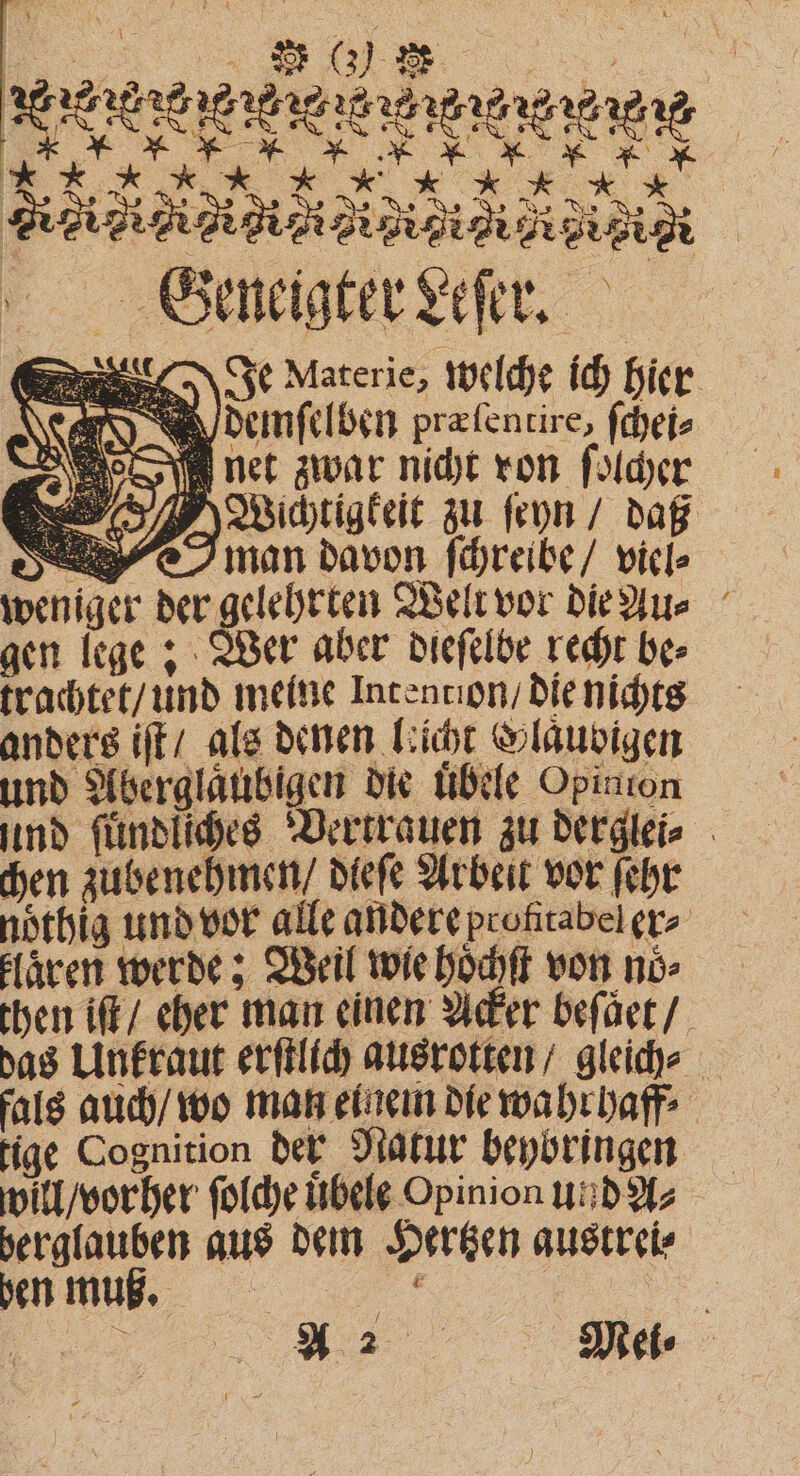 (3)
Geneigter Leſer.
DIe Materie, welche ich hier
demſelben præſentire, ſchei⸗
net zwar nicht von ſolcher
Wichtigkeit zu ſeyn / daß
man davon ſchreibe / viel⸗
weniger der gelehrten Welt vor die Au⸗
gen lege ; Wer aber dieſelbe recht be⸗
trachtet / und meine Intention / die nichts
anders iſt / als denen leicht Glaͤubigen
und Aberglaͤubigen die uͤbele Opinion
und ſuͤndliches Vertrauen zu derglei⸗
chen zubenehmen / dieſe Arbeit vor ſehr
noͤthig und vor alle andere profitabel er⸗
klaͤren werde ; Weil wie hoͤchſt von noͤ⸗
then iſt / eher man einen Acker beſaͤet /
das Unkraut erſtlich ausrotten / gleich⸗
fals auch / wo man einem die wahrhaff⸗
tige Cognition der Natur beybringen
will / vorher ſolche uͤbele Opinion und A⸗
berglauben aus dem Hertzen austrei⸗
ben muß.
A 2 Mei⸗